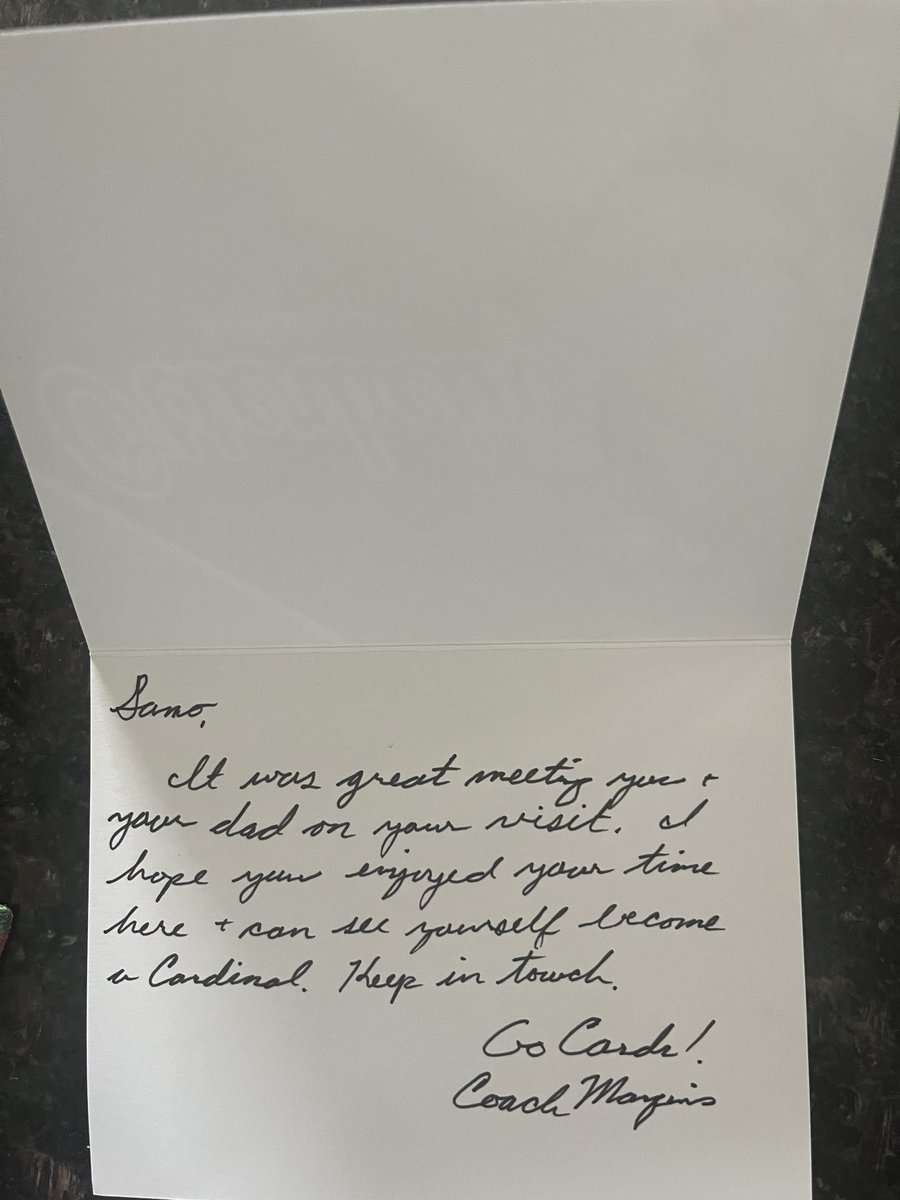 Samo,
It was great meeting you +
your dad on your visit. I
hope you enjoyed your time
here + can see yourself become
a Cardinal. Keep in touch.
Go Cards!
Coach